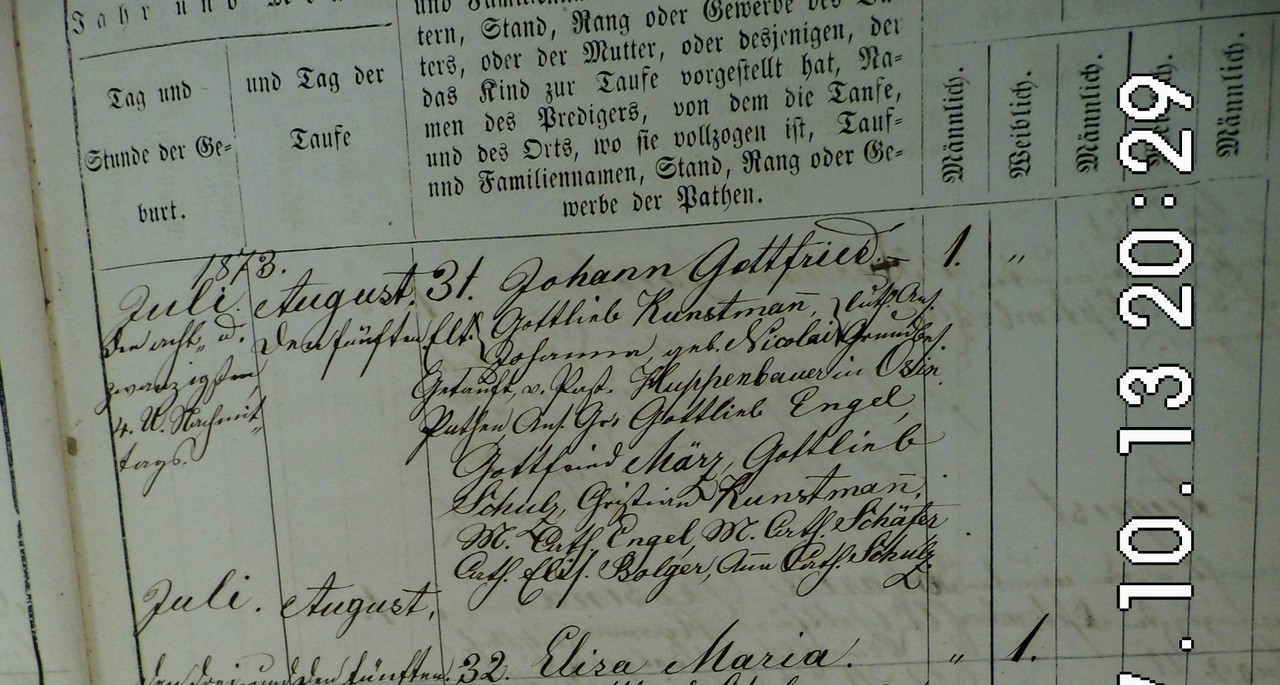 Jahr und
Tag und
Stunde der Ge-
burt.
und Tag der
Taufe
und Familienn
tern, Stand, Rang oder Gewerbe des Va-
ters, oder der Mutter, oder desjenigen, der
das Kind zur Taufe vorgestellt hat, Na-
men des Predigers, von dem die Taufe,
und des Orts, wo sie vollzogen ist, Tauf-
und Familiennamen, Stand, Rang oder Ge-
werbe der Pathen.
Männlich.
Weiblich.
Männlich.
Männlich.
1873.
Juli.
den acht u.
zwanzigsten
4. U. Nachmit
tags.
August.
den fünften
31. Johann Gottfried.
Elt. Gottlieb Kunstmañ, luth. Ans.
Johanna, geb. Nicolai Grundbes.
Getauft, v. Past. Huppenbauer in
Pathen Ans. Gr. Gottlieb Engel,
Gottfried März, Gottlieb
Schulz, Christian Kunstmañ,
M. Cath. Engel, M. Cath. Schäfer
Cath. Elis. Bolger, Ann Cath. Schulz
1. „
Juli. August,
den drei und den fünften.
32. Elisa Maria.
„ 1.
7.10.13 20:29